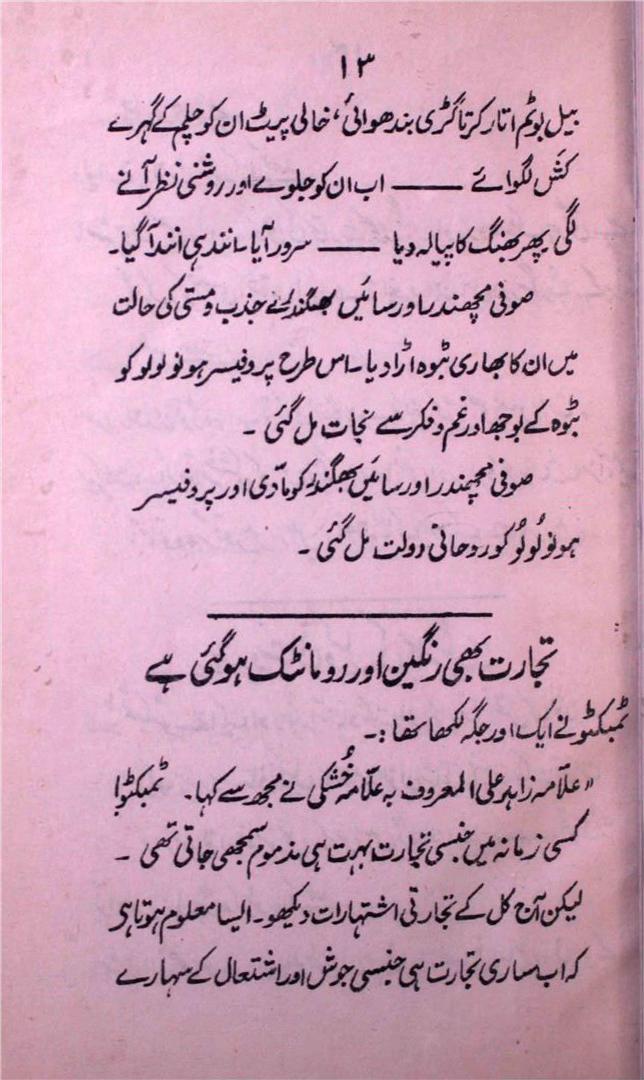 ۱۳
بیل بوٹم اتار کر تاگڑی بندھوائی، خالی پیٹ ان کو چلم کے گہرے
کَش لگوائے —— اب ان کو جلوے اور روشنی نظر آنے
لگی پھر بھنگ کا پیالہ دیا —— سرور آیا۔ انند ہی انند آگیا۔
صوفی مچھندر اور سائیں بھگندر نے جذب و مستی کی حالت
میں ان کا بھاری بٹوہ اڑا دیا۔ اس طرح پروفیسر ہونولولو کو
بٹوہ کے بوجھ اور غم و فکر سے نجات مل گئی ۔
صوفی مچھندر اور سائیں بھگندر کو مادّی اور پروفیسر
ہونولُولُو کو روحانی دولت مل گئی ۔
تجارت بھی رنگین اور رومانٹک ہو گئی ہے
ٹمبکٹو نے ایک اور جگہ لکھا تھا :۔
"علّامہ زاہد علی المعروف بہ علّامہ خُشکی نے مجھ سے کہا۔ ٹمبکٹو!
کسی زمانہ میں جنسی تجارت بہت ہی مذموم سمجھی جاتی تھی ۔
لیکن آج کل کے تجارتی اشتہارات دیکھو۔ ایسا معلوم ہوتا ہی
کہ اب ساری تجارت ہی جنسی جوش اور اشتعال کے سہارے